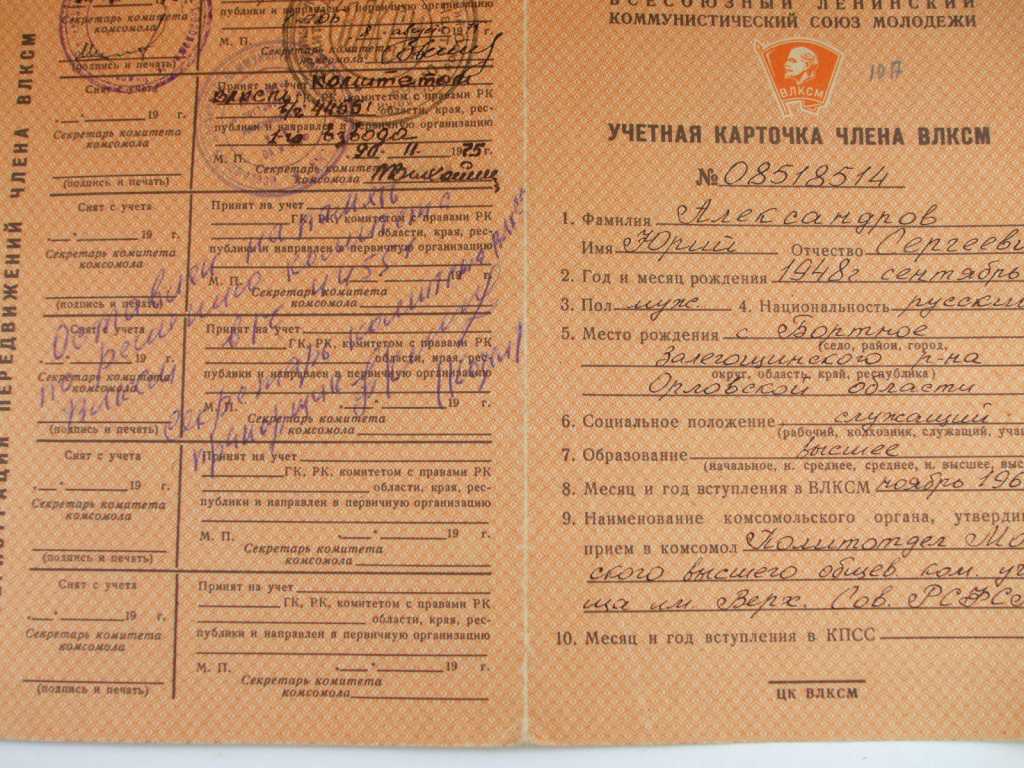 РЕГИСТРАЦИЯ ПЕРЕДВИЖЕНИЙ ЧЛЕНА ВЛКСМ
Секретарь комитета
комсомола
(подпись и печать)
публики и направлен в первичную организацию
8 август 19 г.
М. П.
Секретарь комитета
комсомола
Снят с учета
. . 19 г.
Секретарь комитета
комсомола
(подпись и печать)
Принят на учет Комитетом
ВЛКСМ ГК, РК, комитетом с правами РК
области, края, рес-
публики и направлен в первичную организацию
20. 11. 1975 г.
М. П.
Секретарь комитета
комсомола
Снят с учета
. . 19 г.
Секретарь комитета
комсомола
(подпись и печать)
Принят на учет
ГК, РК, комитетом с правами РК
области, края, рес-
публики и направлен в первичную организацию
. . 19 г.
М. П.
Секретарь комитета
комсомола
Снят с учета
. . 19 г.
Секретарь комитета
комсомола
(подпись и печать)
Принят на учет
ГК, РК, комитетом с правами РК
области, края, рес-
публики и направлен в первичную организацию
. . 19 г.
М. П.
Секретарь комитета
комсомола
на память
по решению
ВЛКСМ
Секретарь
прапорщик
Снят с учета
. . 19 г.
Секретарь комитета
комсомола
(подпись и печать)
Принят на учет
ГК, РК, комитетом с правами РК
области, края, рес-
публики и направлен в первичную организацию
. . 19 г.
М. П.
Секретарь комитета
комсомола
Снят с учета
. . 19 г.
Секретарь комитета
комсомола
(подпись и печать)
Принят на учет
ГК, РК, комитетом с правами РК
области, края, рес-
публики и направлен в первичную организацию
. . 19 г.
М. П.
Секретарь комитета
комсомола
ВСЕСОЮЗНЫЙ ЛЕНИНСКИЙ
КОММУНИСТИЧЕСКИЙ СОЮЗ МОЛОДЕЖИ
ВЛКСМ
УЧЕТНАЯ КАРТОЧКА ЧЛЕНА ВЛКСМ
№ 08518514
1. Фамилия Александров
Имя Юрий Отчество Сергееви
2. Год и месяц рождения 1948г сентябрь
3. Пол муж 4. Национальность русски
5. Место рождения с. Бортное
(село, район, город,
Залегощинского р-на
округ, область, край, республика)
Орловской области
6. Социальное положение служащий
(рабочий, колхозник, служащий, уча
7. Образование высшее
(начальное, н. среднее, среднее, н. высшее, выс
8. Месяц и год вступления в ВЛКСМ ноябрь 196
9. Наименование комсомольского органа, утверди
прием в комсомол Политотдел Мо
ского высшего общев. ком. уч
ща им. Верх. Сов. РСФС
10. Месяц и год вступления в КПСС
ЦК ВЛКСМ